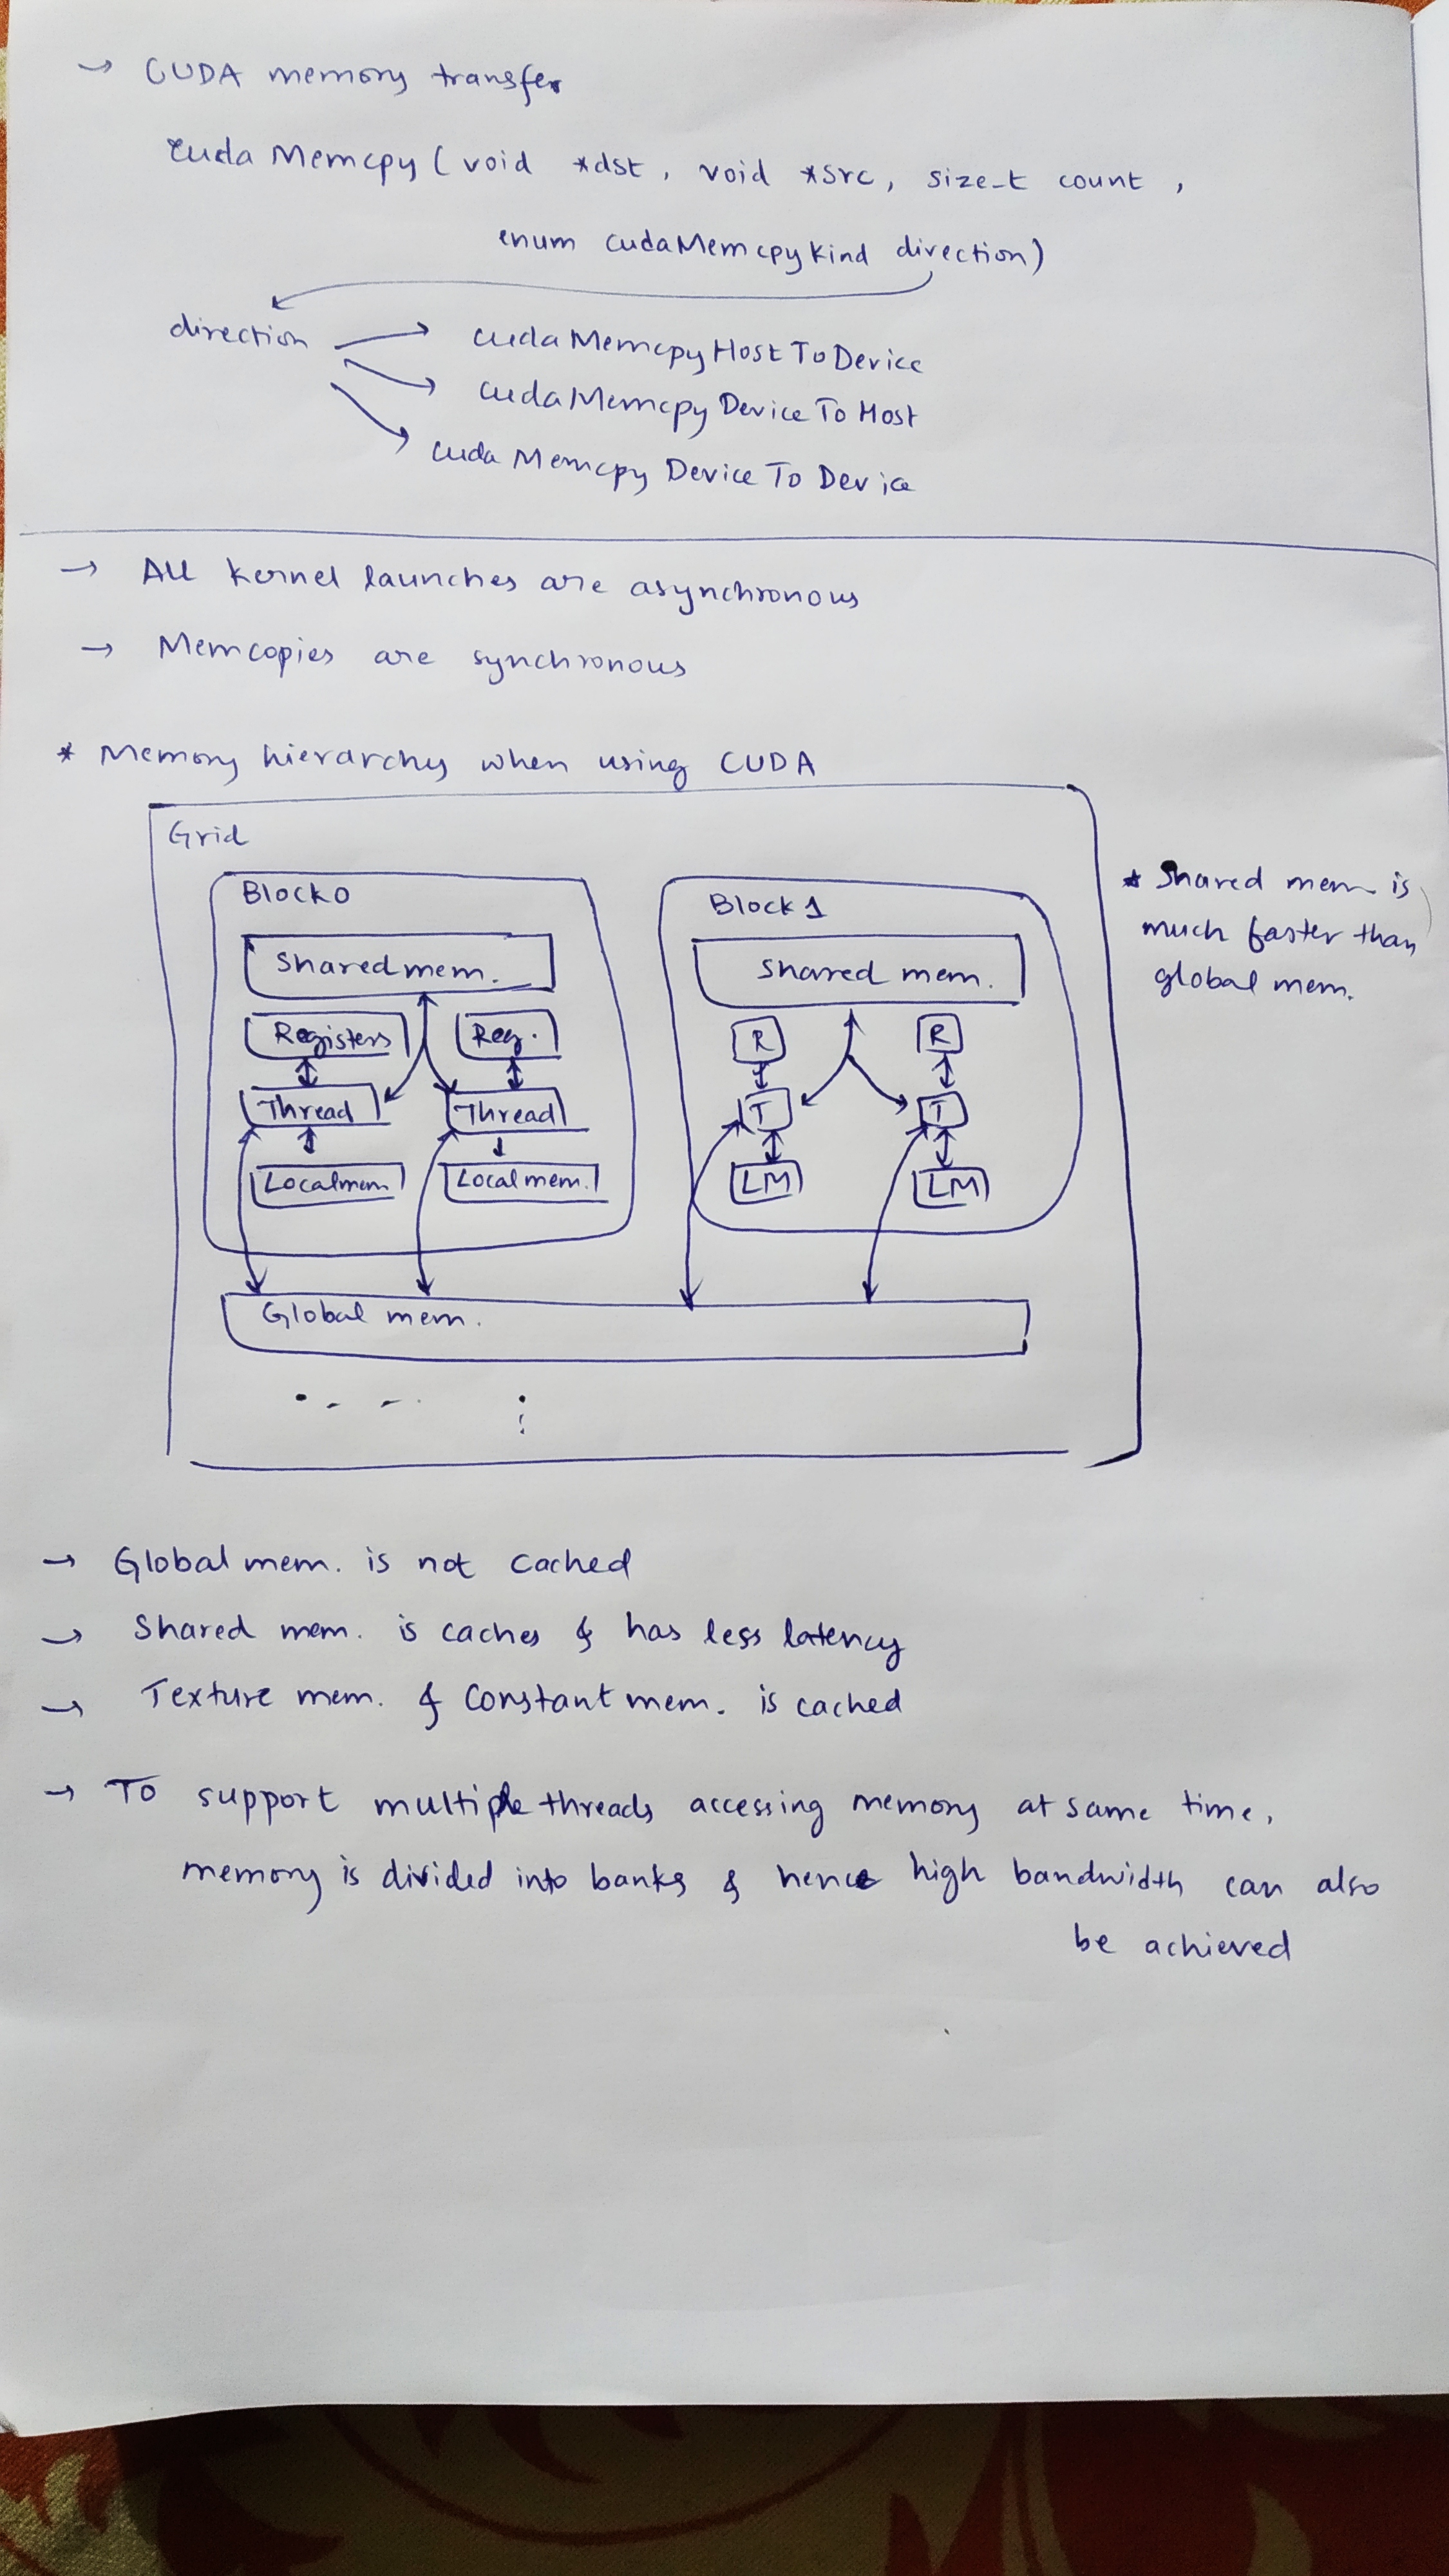 → CUDA memory transfer
cudaMemcpy(void *dst, void *src, size_t count,
enum cudaMemcpyKind direction)
direction → cudaMemcpyHostToDevice
→ cudaMemcpyDeviceToHost
→ cudaMemcpyDeviceToDevice
→ All kernel launches are asynchronous
→ Memcopies are synchronous
* Memory hierarchy when using CUDA
Grid
Block0
Block 1
Shared mem.
Shared mem.
Registers
Reg.
R
R
Thread
Thread
T
T
Local mem
Local mem.
LM
LM
Global mem.
* Shared mem is
much faster than
global mem.
→ Global mem. is not cached
→ Shared mem. is caches & has less latency
→ Texture mem. & Constant mem. is cached
→ To support multiple threads accessing memory at same time,
memory is divided into banks & hence high bandwidth can also
be achieved